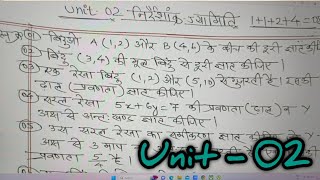 Unit 02 निर्देशांक ज्यामिति 1+1+2+4 =
01 बिन्दुओं A (1,2) और B (4,4) के बीच की दूरी ज्ञात कीजिए।
02 बिंदु (3,4) की मूल बिंदु से दूरी ज्ञात कीजिए।
03 एक रेखा बिंदु (1,2) और (5,10) से गुजरती है। इसकी
ढाल (प्रवणता) ज्ञात कीजिए।
04 सरल रेखा 5x+6y=7 की प्रवणता (ढाल) व Y
अक्ष से अन्तः खण्ड ज्ञात कीजिए।
05 उस सरल रेखा का समीकरण ज्ञात कीजिए
अक्ष से 3 माप
प्रवणता 5/4 है।
Unit - 02